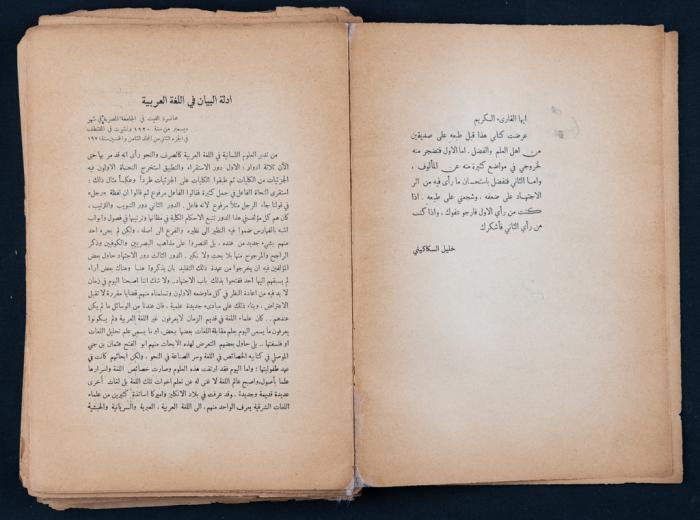 ايها القارىء الكريم
عرضت كتابي هذا قبل طبعه على صديقين
من اهل العلم والفضل . اما الاول فتضجر منه
لخروجي في مواضع كثيرة منه عن المألوف ،
واما الثاني فتفضل باستحسان ما رأى فيه من اثر
الاجتهاد على ضعفه ، وشجعني على طبعه . اذا
كنت من رأي الاول فارجو عفوك ، واذا كنت
من رأي الثاني فأشكرك
خليل السكاكيني
ادلة البيان في اللغة العربية
محاضرة القيت في الجامعة المصرية في شهر
ديسمبر من سنة ١٩٢٠ ونشرت في المقتطف
في الجزء الثاني من المجلد الثامن والخمسين سنة ١٩٢١
من تدبر العلوم اللسانية في اللغة العربية كالصرف والنحو رأى انه قد مر بها حتى
الآن ثلاثة ادوار : الاول دور الاستقراء والتطبيق استخرج النحاة الاولون فيه
الجزئيات من الكليات ثم طبقوا الكليات على الجزئيات طرداً وعكساً مثال ذلك :
استقرى النحاة الفاعل في جمل كثيرة فقالوا الفاعل مرفوع ثم قالوا ان لفظة «رجل»
في قولنا جاء الرجل مثلاً مرفوع لانه فاعل . الدور الثاني دور التبويب والترتيب ،
كان هم كل مؤلفي هذا الدور تتبع الاحكام الكلية في مظانها وترتيبها في فصول وابواب
اشبه بالفهارس ضموا فيه النظير الى نظيره والفرع الى اصله ، ولكن لم يجرء احد
منهم بشيء جديد من عنده ، بل اقتصروا على مذاهب البصريين والكوفيين وذكر
الراجح والمرجوح منها بلا بحث ولا نكير . الدور الثالث دور الاجتهاد حاول بعض
المؤلفين فيه ان يخرجوا من عهدة ذلك التقليد بان يذكروا هنا وهناك بعض آراء
لم يسبقهم اليها احد ففتحوا بذلك باب الاجتهاد . ولا شك اننا اصبحنا اليوم في زمان
لا بد فيه من اعادة النظر في كل ما وضعه الاولون وتسلمناه منهم قضايا مقررة لا تقبل
الاعتراض ، وبناء ذلك على مبادىء جديدة علمية ، فان عندنا من الوسائل ما لم يكن
عندهم . . كان علماء اللغة في قديم الزمان لا يعرفون غير اللغة العربية ولم يكونوا
يعرفون ما يسمى اليوم بعلم مقابلة اللغات بعضها ببعض ، او ما يسمى علم تحليل اللغات
او فلسفتها . . بلى حاول بعضهم التعرض لهذه الابحاث منهم ابو الفتح عثمان بن جني
الموصلي في كتابيه الخصائص في اللغة وسر الصناعة في النحو ، ولكن ابحاثهم كانت في
عهد طفوليتها ؛ واما اليوم فقد ارتقت هذه العلوم وصارت خصائص اللغة واسرارها
علما باصول ، واصبح عالم اللغة لا غنى له عن تعلم اخوات تلك اللغة بل لغات أخرى
عديدة قديمة وجديدة . وقد عرفت في بلاد الانكليز واميركا اساتذة كثيرين من علماء
اللغات الشرقية يعرف الواحد منهم ، الى اللغة العربية ، العبرية والسريانية والحبشية